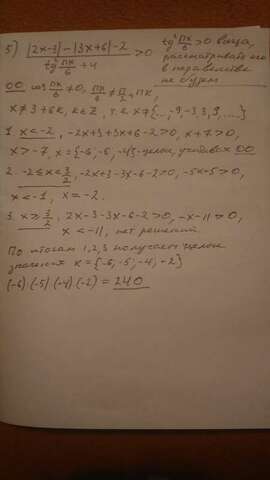 5) |2x-3|-|3x+6|-2 / tg² πx/6 + 4 > 0
tg² πx/6 > 0 всегда,
рассматривать его
в неравенстве
не будем
ОО cos πx/6 ≠ 0, πx/6 ≠ π/2 + πк,
x ≠ 3+6к, к∈Z, т.е. x ≠ {..., -9, -3, 3, 9, ...}
1. x < -2, -2x+3+3x+6-2>0, x+7>0,
x > -7, x = {-6, -5, -4} - целые, учитывая ОО
2. -2 ≤ x < 3/2, -2x+3-3x-6-2>0, -5x-5>0,
x < -1, x = -2.
3. x ≥ 3/2, 2x-3-3x-6-2>0, -x-11>0,
x < -11, нет решений
По итогам 1,2,3 получаем целые
значения x = {-6; -5; -4; -2}
(-6)·(-5)·(-4)·(-2) = 240